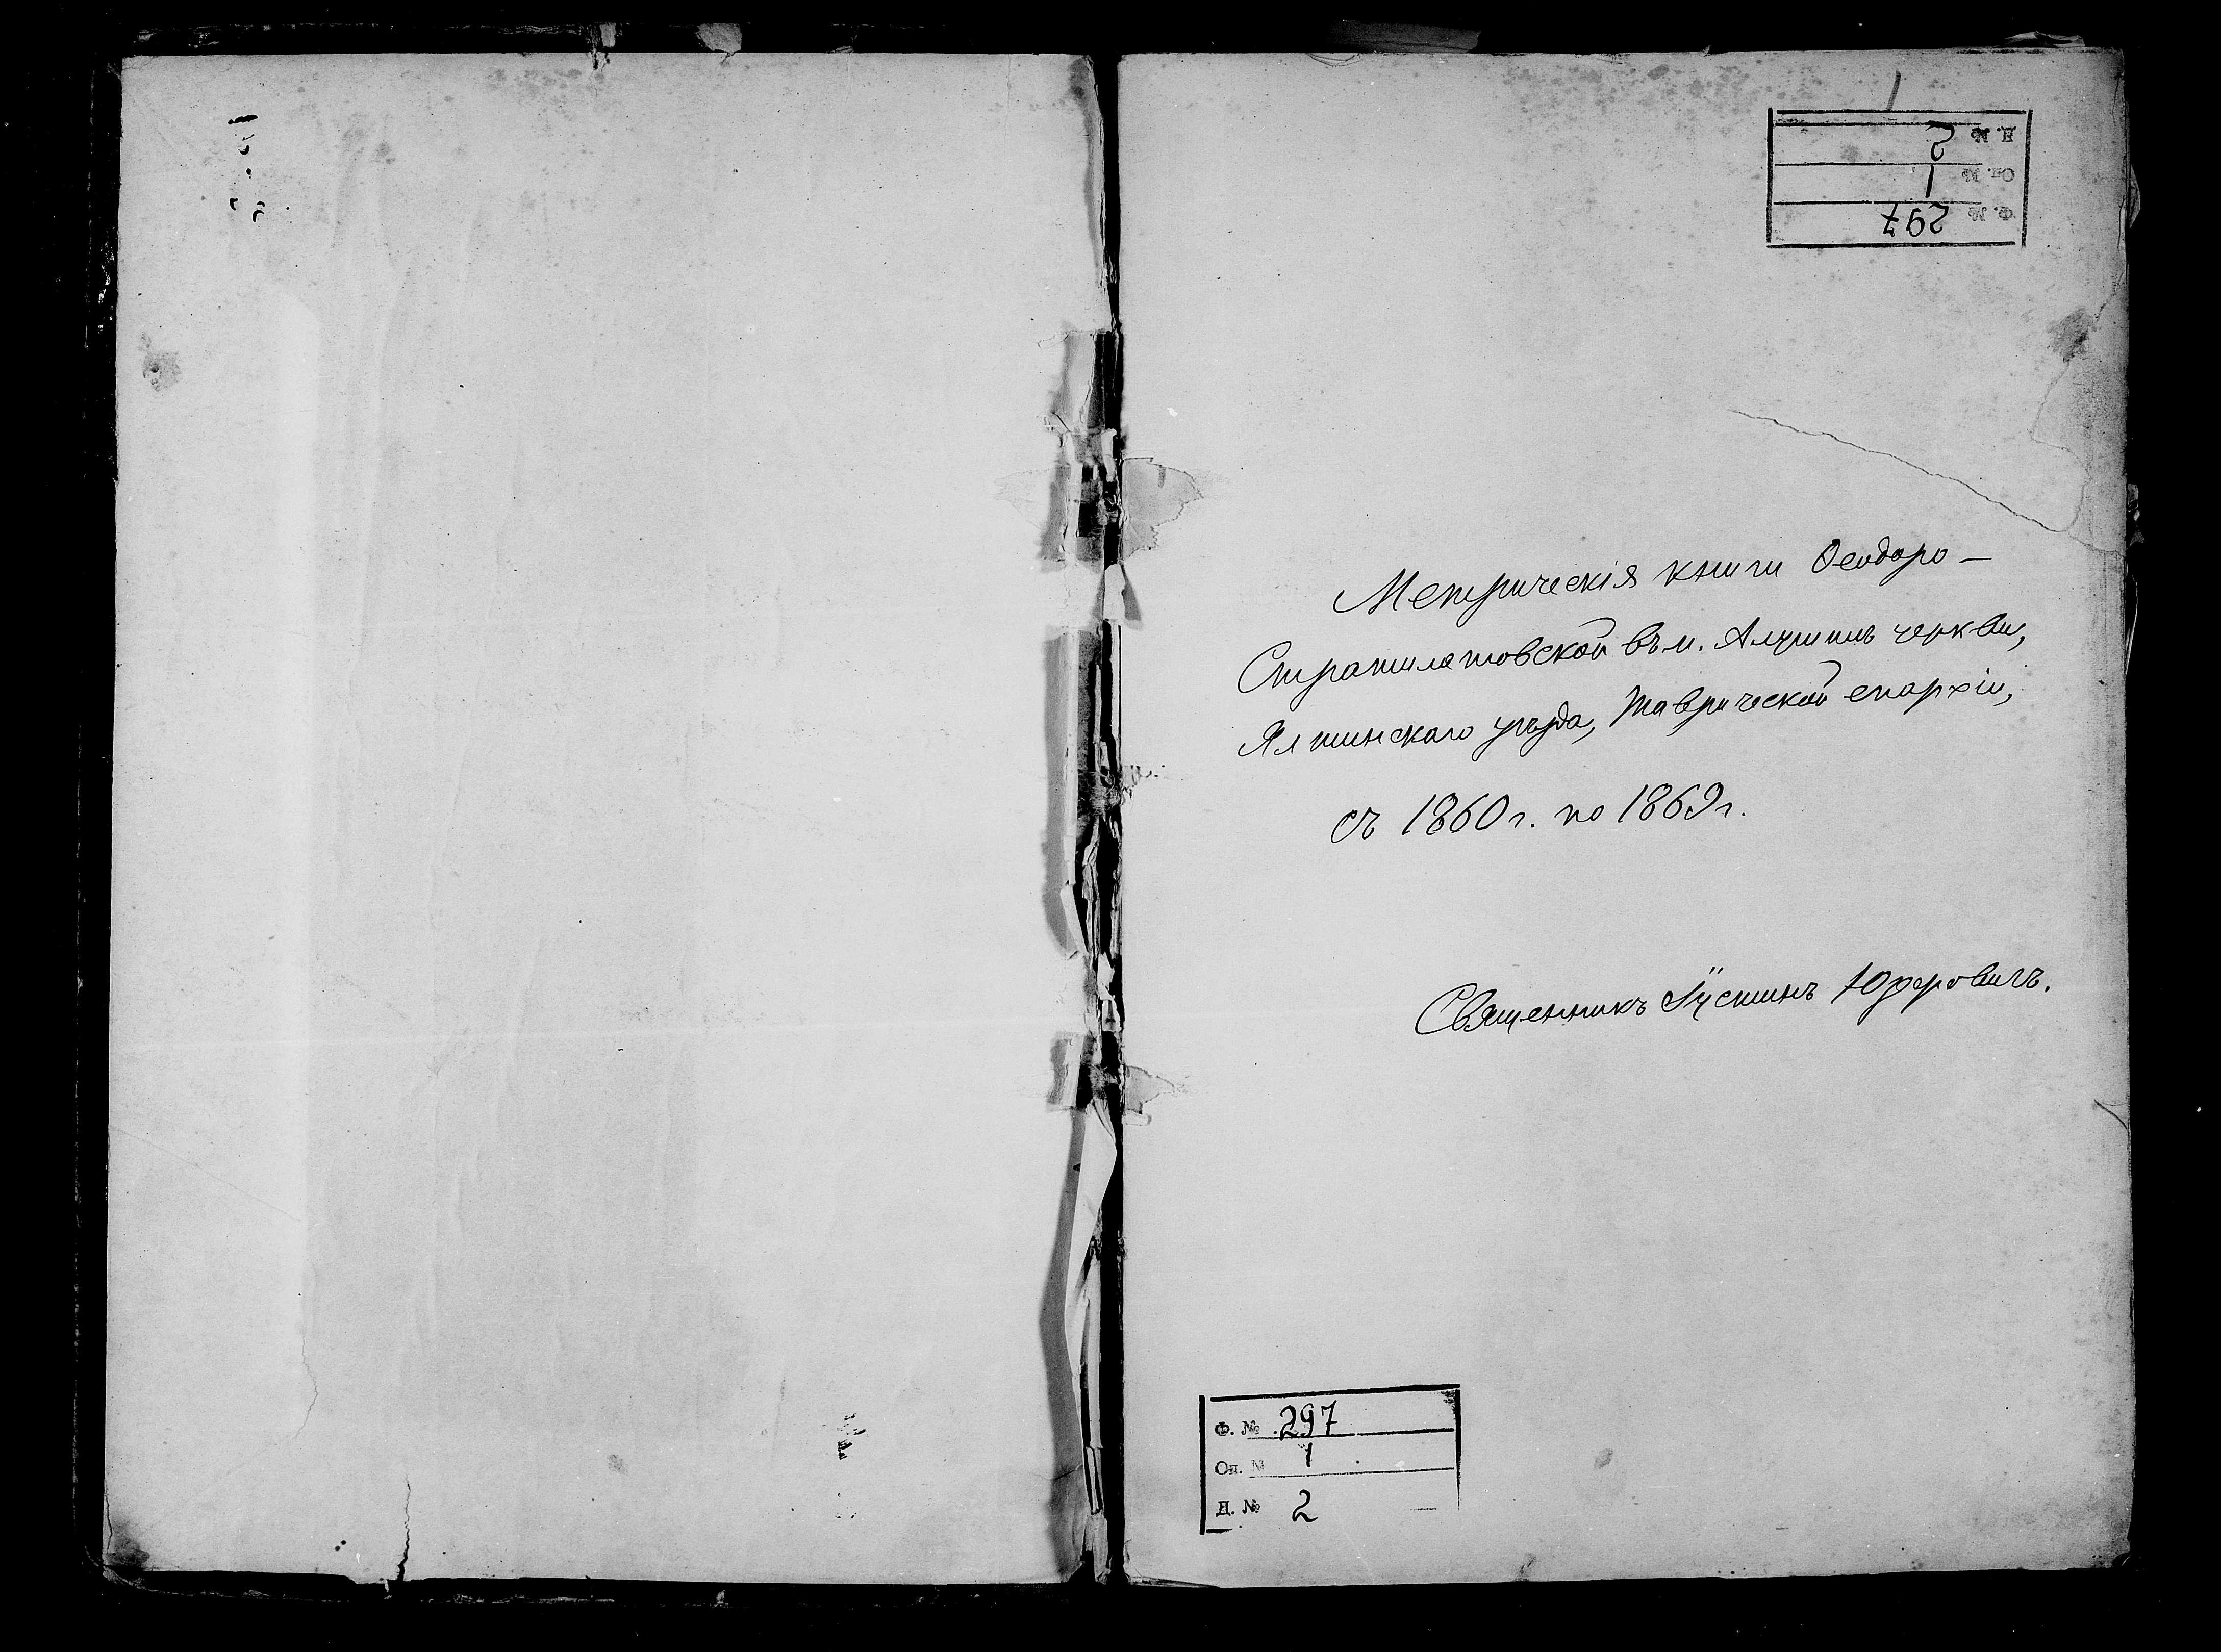 1
Д. № 2
Оп. № 1
Ф. № 297
Метрическія книги Ѳеодоро-
Стратилатовской въ м. Алуштѣ церкви,
Ялтинскаго уѣзда, Таврической епархіи,
съ 1860 г. по 1869 г.
Священникъ Іустинъ Юзефовичъ.
Ф. № 297
Оп. № 1
Д. № 2